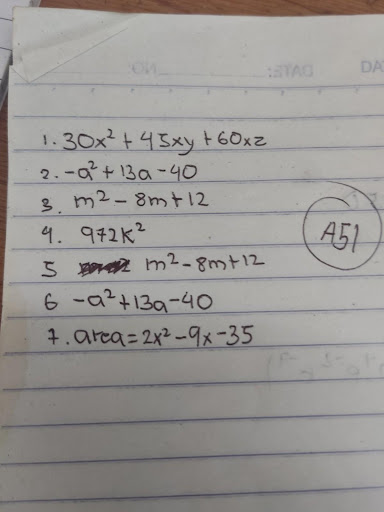 DATE: NO.
DA
1. 30x² + 45xy + 60xz
2. -a² + 13a - 40
3. m² - 8m + 12
4. 972k²
A51
5 m² - 8m + 12
6 -a² + 13a - 40
7. area = 2x² - 9x - 35